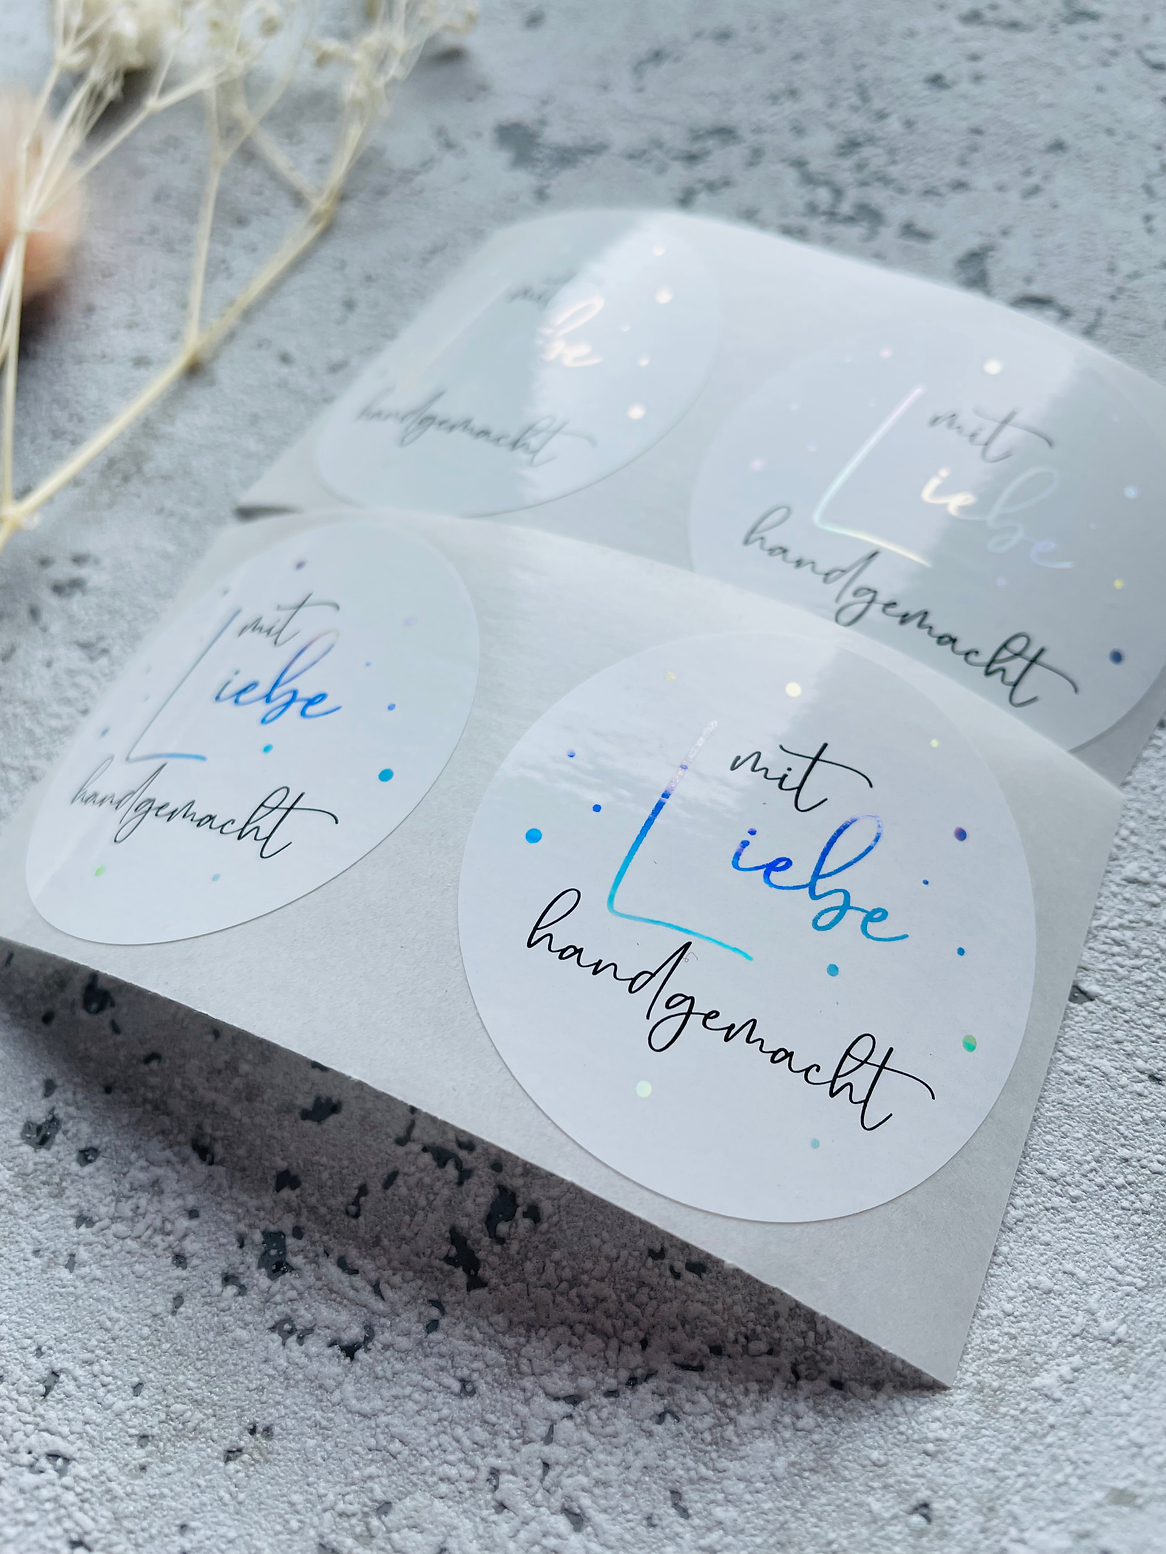 mit
Liebe
handgemacht
mit
Liebe
handgemacht
mit
Liebe
handgemacht
mit
be
handgemacht